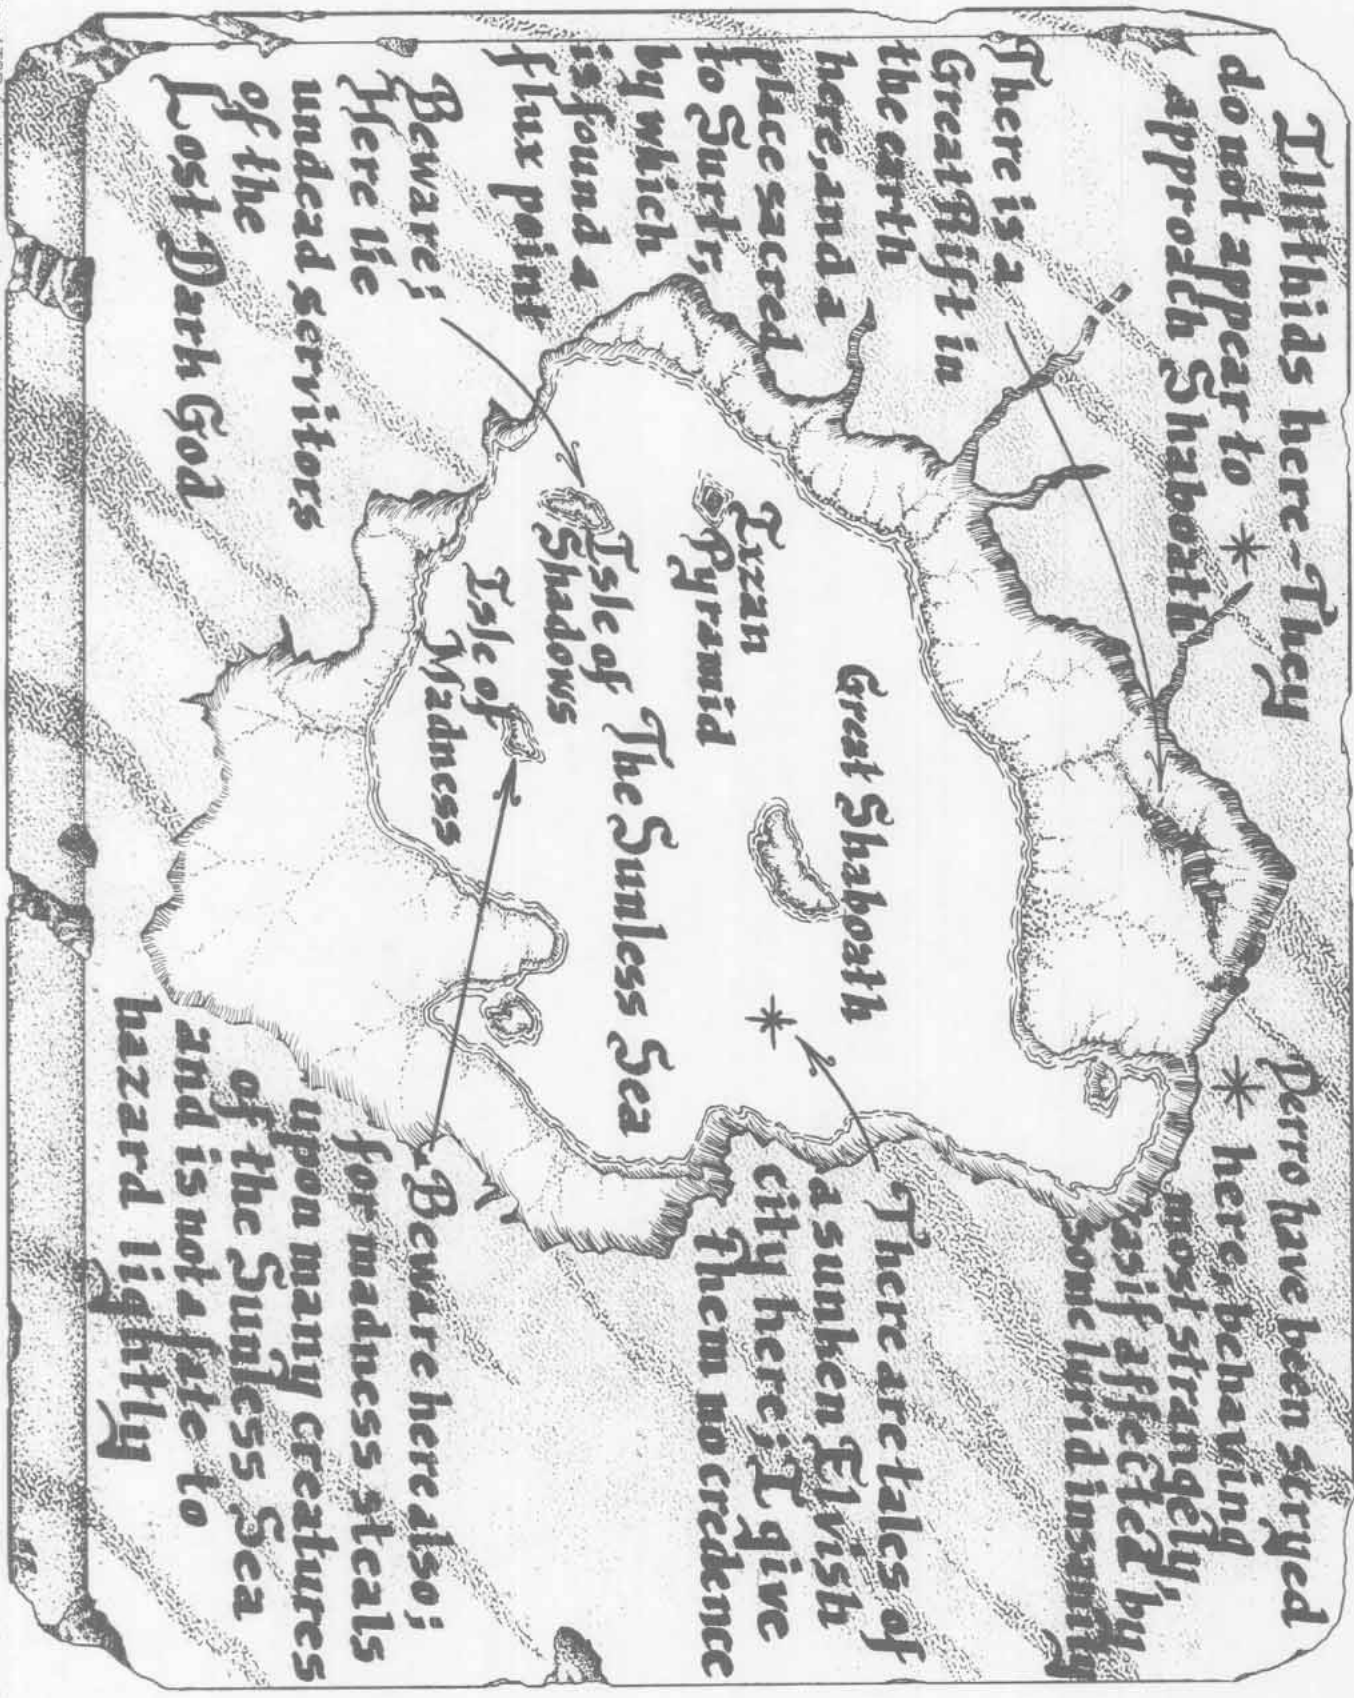 Illithids here - They
do not appear to *
approach Shaboath
There is a
Great Rift in
the earth
here, and a
place sacred
to Surtr,
by which
is found a
flux point
Beware;
Here lie
undead servitors
of the
Lost Dark God
Derro have been stryed
* here, behaving
most strangely,
as if affected by
some lurid insanity
Great Shaboath
Ixzan
Pyramid
Isle of
Shadows
The Sunless Sea
Isle of
Madness
*
There are tales of
a sunken Elvish
city here; I give
them no credence
Beware here also;
for madness steals
upon many creatures
of the Sunless Sea
and is not a fate to
hazard lightly